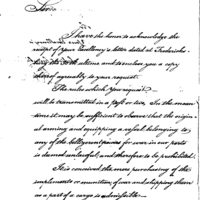 Sir
I have the honor to acknowledge the
receipt of your Excellency's letter dated at Fredericks-
burg the ultimo and to enclose you a copy
thereof agreeably to your request.
The rules which you request
will be transmitted in a post or two. In the mean
time it may be sufficient to observe that the origin
al arming and equipping a vessel belonging to
any of the belligerent powers for war in our ports
is deemed unlawful, and therefore to be prohibited.
It is conceived the mere purchasing of the
implements or munition of war and shipping them
as a part of a cargo is admissible.